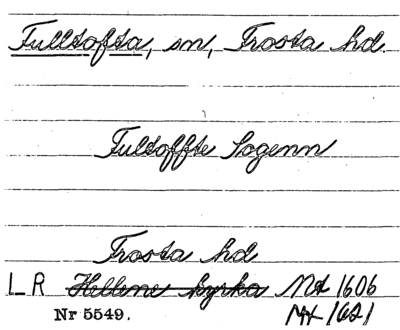 Fulltofta, sn, Frosta hd.
Fultoffte Sogenn
Frosta hd
LR Hellene kyrka Mt 1606
Nr 5549. Mt 1621